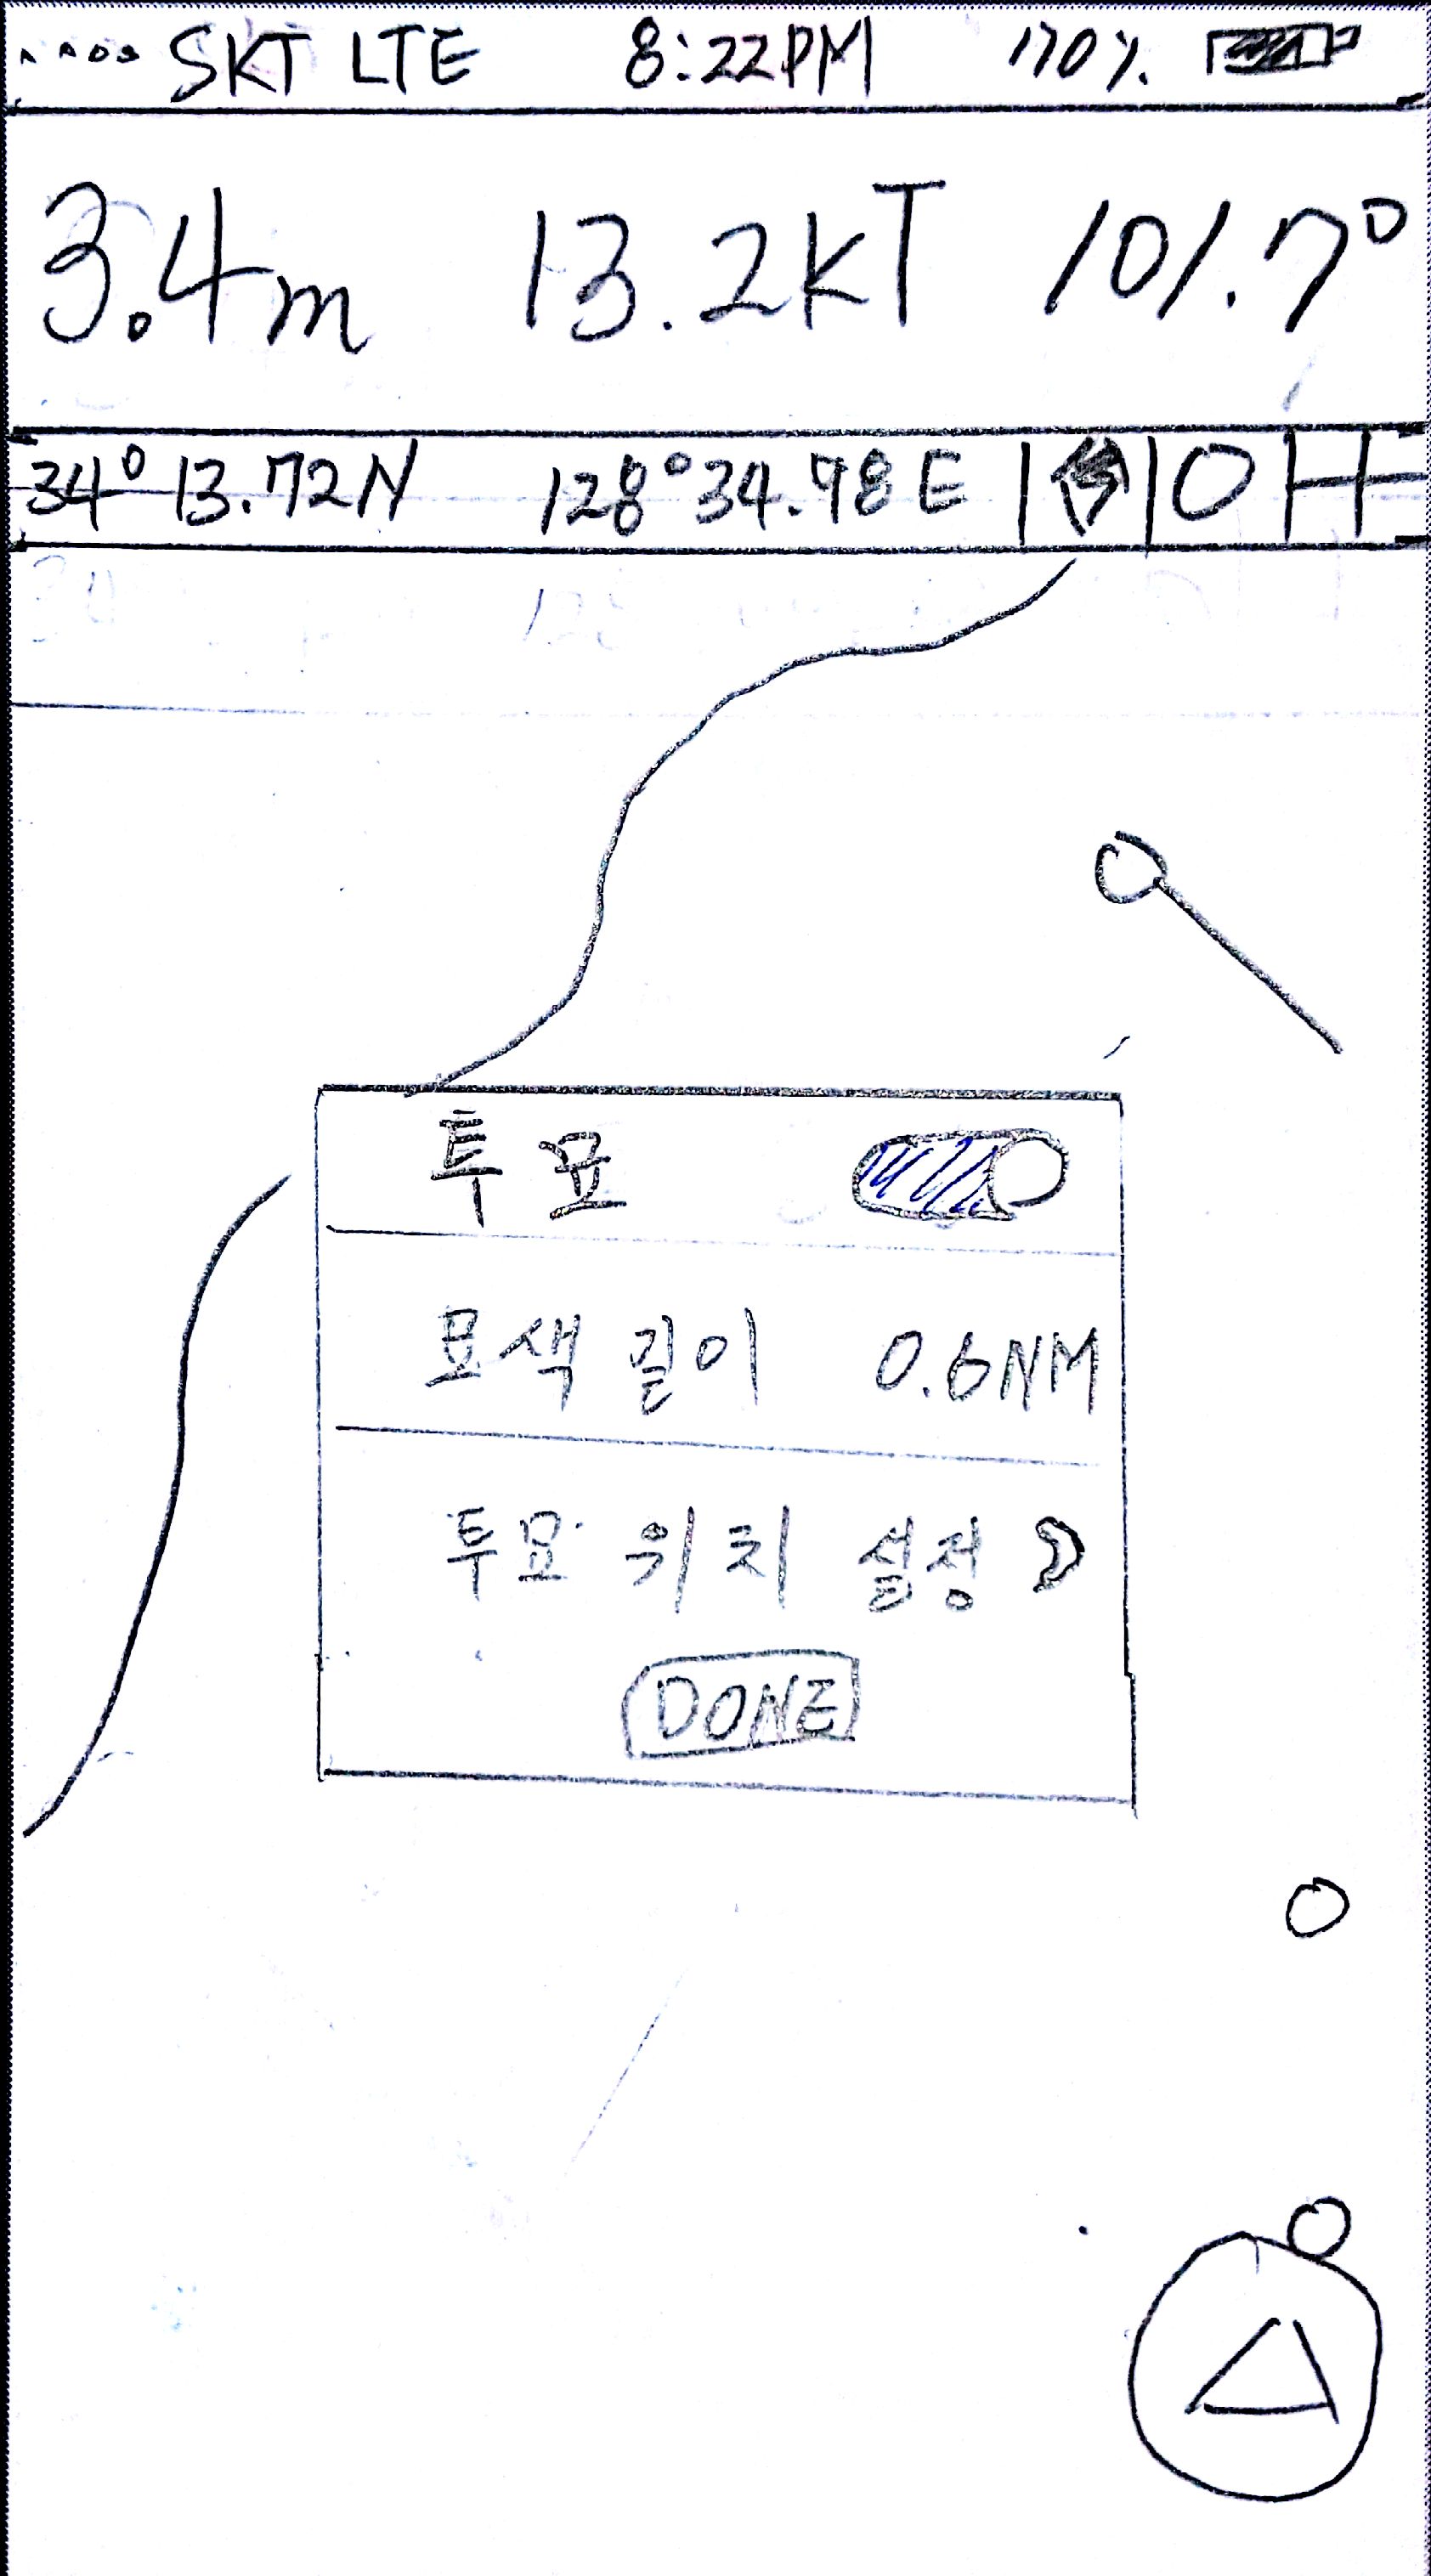 SKT LTE 8:22PM 70%
3.4m 13.2kT 101.7°
34° 13.72N 128°34.78E
투묘
묘색 길이 0.6NM
투묘 위치 설정
DONE